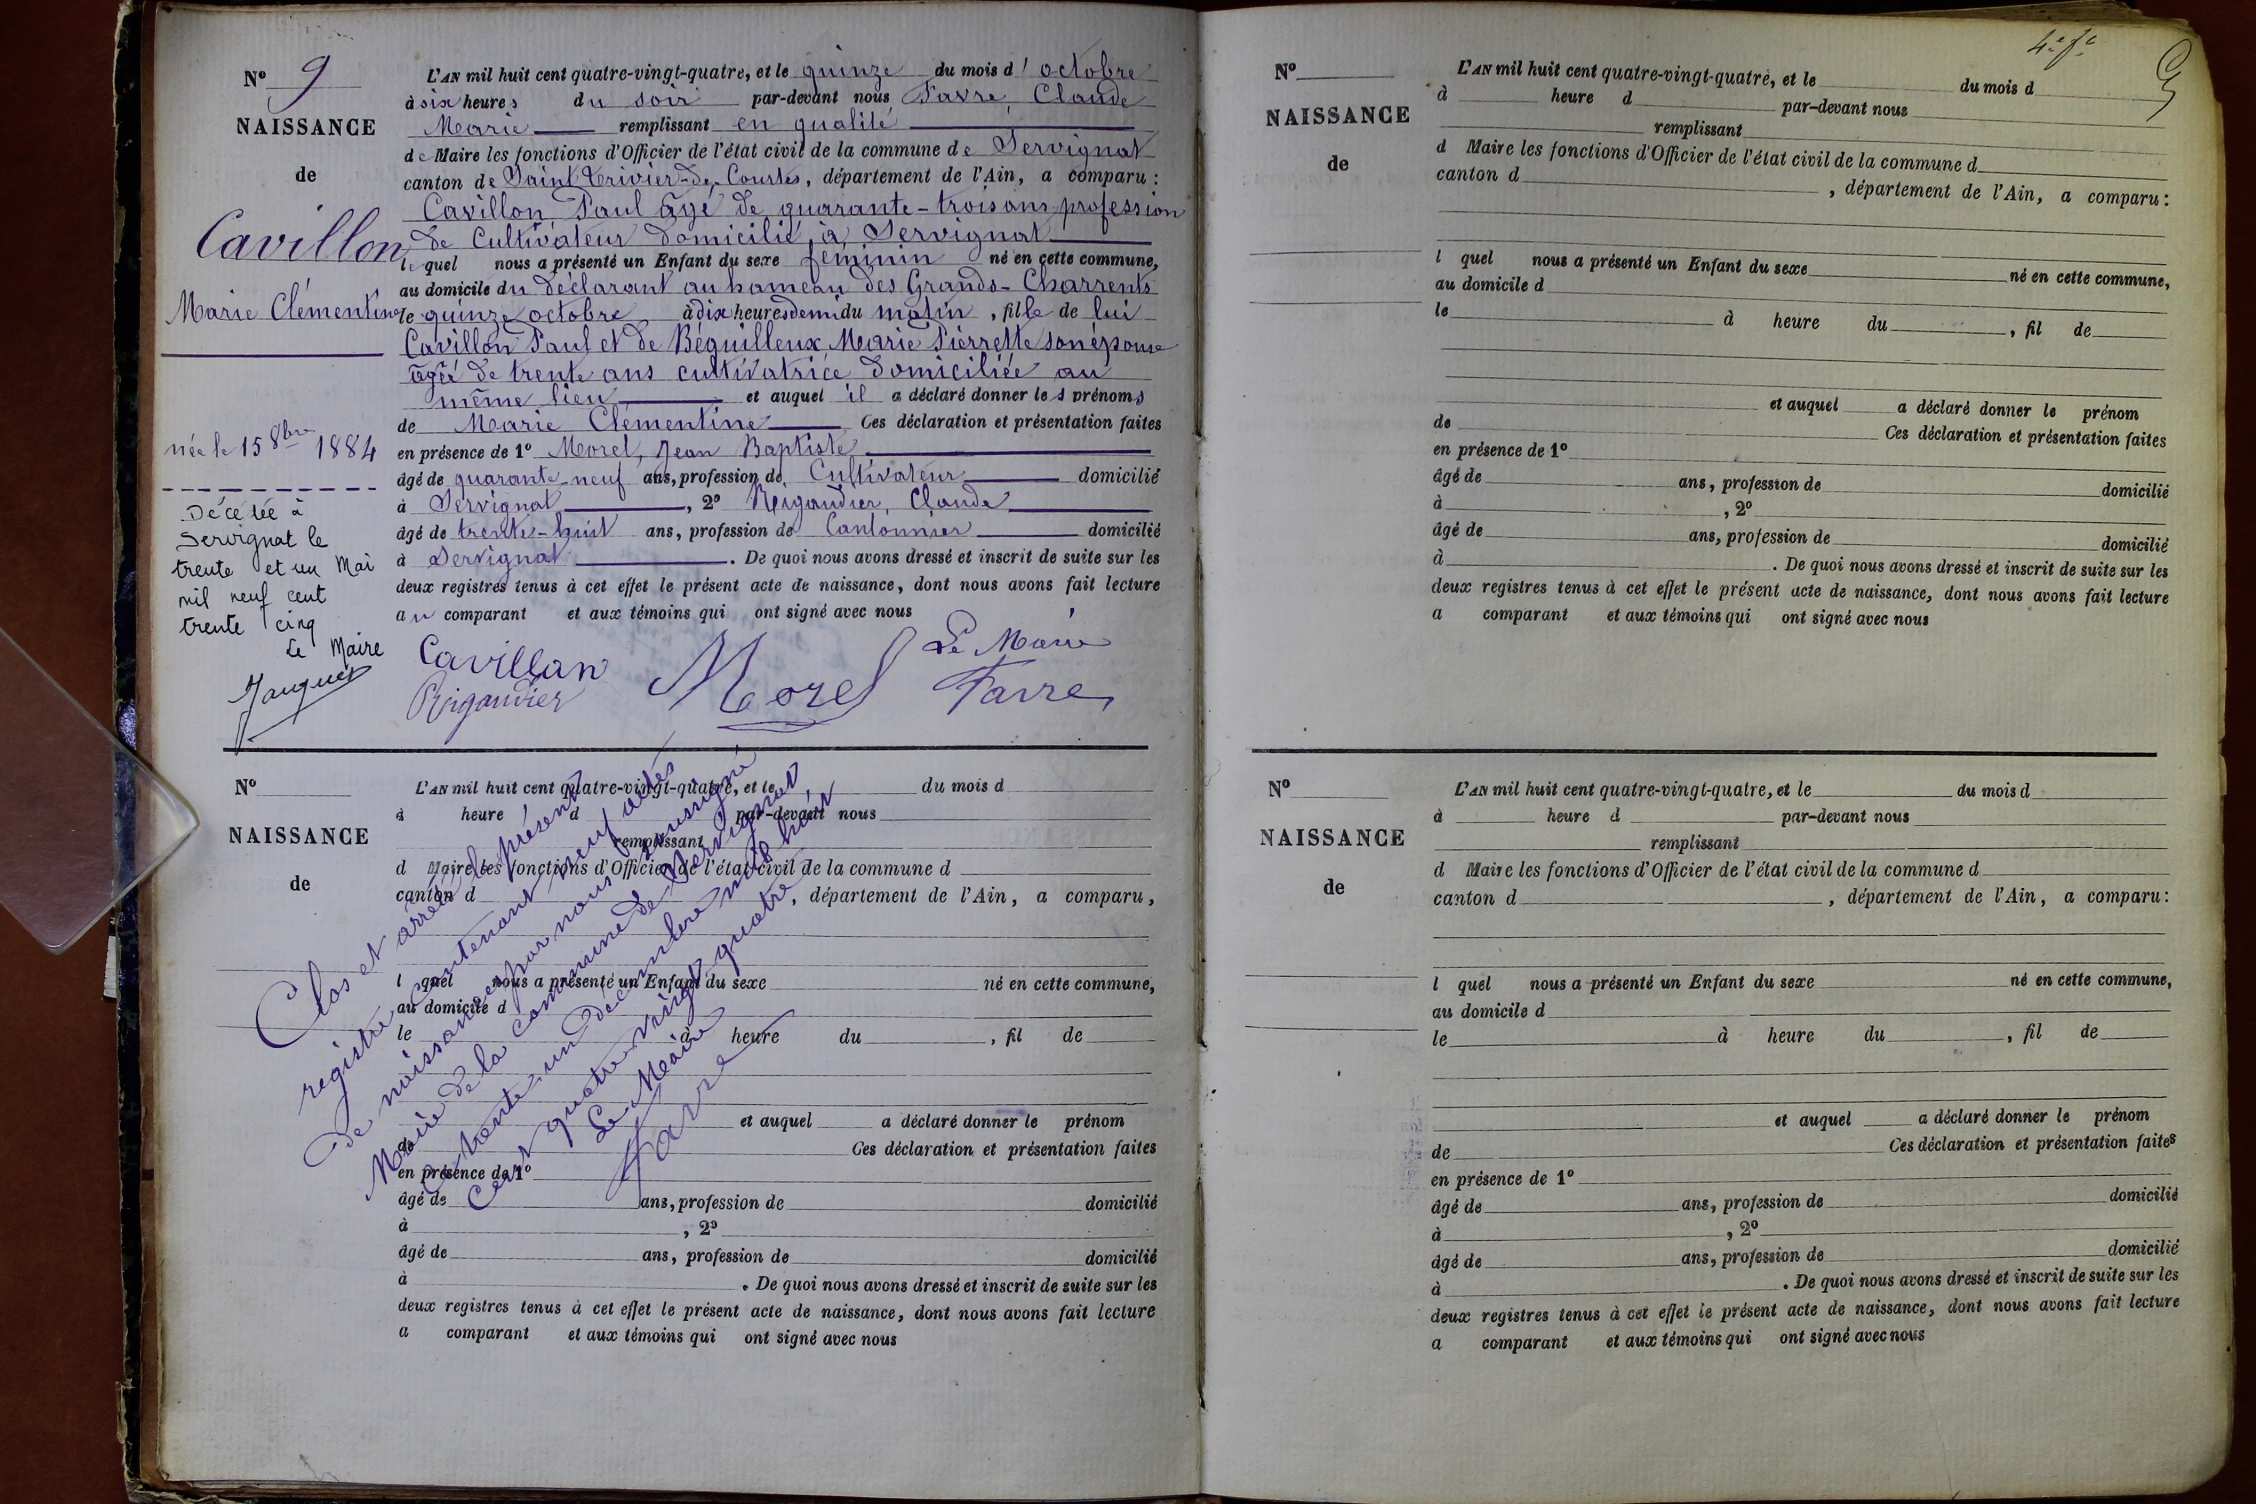 N° 9
NAISSANCE
de
Cavillon
Marie Clémentine
née le 15 8bre 1884
Décédée à
Servignat le
trente et un Mai
mil neuf cent
trente cinq
Le Maire
L'AN mil huit cent quatre-vingt-quatre, et le quinze du mois d'octobre
à six heures du soir par-devant nous Favre, Claude
Marie remplissant en qualité
de Maire les fonctions d'Officier de l'état civil de la commune de Servignat
canton de Saint Trivier-de-Courtes, département de l'Ain, a comparu :
Cavillon Paul âgé de quarante-trois ans profession
de Cultivateur domicilié à Servignat
lequel nous a présenté un Enfant du sexe féminin né en cette commune,
au domicile du déclarant au hameau des Grands-Charrents
le quinze octobre à dix heures demi du matin, fille de lui
Cavillon Paul et de Béguilleux Marie Pierrette son épouse
âgée de trente ans cultivatrice domiciliée au
même lieu et auquel il a déclaré donner les prénoms
de Marie Clémentine Ces déclaration et présentation faites
en présence de 1° Morel, Jean Baptiste
âgé de quarante-neuf ans, profession de Cultivateur domicilié
à Servignat, 2° Rigaudier, Claude
âgé de trente-huit ans, profession de Cantonnier domicilié
à Servignat. De quoi nous avons dressé et inscrit de suite sur les
deux registres tenus à cet effet le présent acte de naissance, dont nous avons fait lecture
au comparant et aux témoins qui ont signé avec nous
Cavillon Morel Le Maire
Rigaudier Favre
N°
NAISSANCE
de
L'AN mil huit cent quatre-vingt-quatre, et le du mois d
à heure d par-devant nous
remplissant
d Maire les fonctions d'Officier de l'état civil de la commune d
canton d , département de l'Ain, a comparu,
l quel nous a présenté un Enfant du sexe né en cette commune,
au domicile d
le à heure du , fil de
et auquel a déclaré donner le prénom
de Ces déclaration et présentation faites
en présence de 1°
âgé de ans, profession de domicilié
à , 2°
âgé de ans, profession de domicilié
à . De quoi nous avons dressé et inscrit de suite sur les
deux registres tenus à cet effet le présent acte de naissance, dont nous avons fait lecture
a comparant et aux témoins qui ont signé avec nous
Clos et arrêté le présent
registre contenant neuf actes
de naissances par nous soussigné
Maire de la commune de Servignat
ce trente-un décembre mil huit
cent quatre vingt quatre
Le Maire
Favre
4e fe
N°
NAISSANCE
de
L'AN mil huit cent quatre-vingt-quatre, et le du mois d
à heure d par-devant nous
remplissant
d Maire les fonctions d'Officier de l'état civil de la commune d
canton d , département de l'Ain, a comparu :
l quel nous a présenté un Enfant du sexe né en cette commune,
au domicile d
le à heure du , fil de
et auquel a déclaré donner le prénom
de Ces déclaration et présentation faites
en présence de 1°
âgé de ans, profession de domicilié
à , 2°
âgé de ans, profession de domicilié
à . De quoi nous avons dressé et inscrit de suite sur les
deux registres tenus à cet effet le présent acte de naissance, dont nous avons fait lecture
a comparant et aux témoins qui ont signé avec nous
N°
NAISSANCE
de
L'AN mil huit cent quatre-vingt-quatre, et le du mois d
à heure d par-devant nous
remplissant
d Maire les fonctions d'Officier de l'état civil de la commune d
canton d , département de l'Ain, a comparu :
l quel nous a présenté un Enfant du sexe né en cette commune,
au domicile d
le à heure du , fil de
et auquel a déclaré donner le prénom
de Ces déclaration et présentation faites
en présence de 1°
âgé de ans, profession de domicilié
à , 2°
âgé de ans, profession de domicilié
à . De quoi nous avons dressé et inscrit de suite sur les
deux registres tenus à cet effet le présent acte de naissance, dont nous avons fait lecture
a comparant et aux témoins qui ont signé avec nous